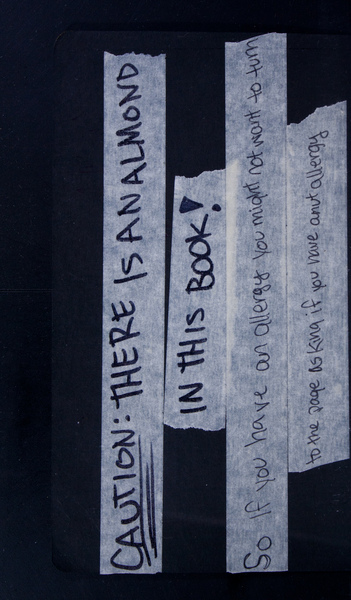 CAUTION: THERE IS AN ALMOND
IN THIS BOOK!
So if you have an allergy you might not want to turn
to the page asking if you have a nut allergy